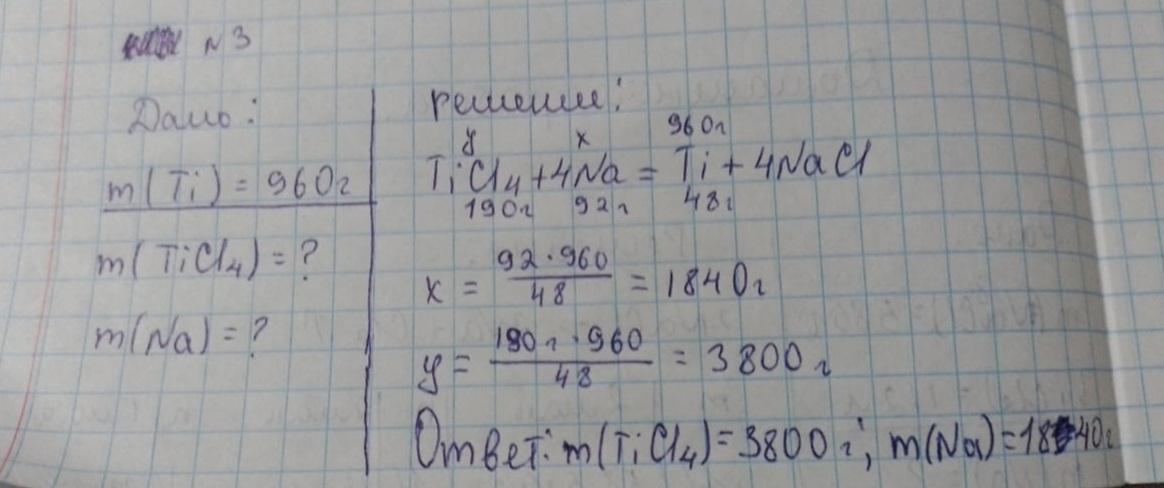 №3
Дано:
m(Ti) = 960г
m(TiCl₄) = ?
m(Na) = ?
решение:
y x 960г
TiCl₄ + 4Na = Ti + 4NaCl
190г 92г 48г
x = 92 · 960 / 48 = 1840г
y = 190г · 960 / 48 = 3800г
Ответ: m(TiCl₄) = 3800г; m(Na) = 1840г